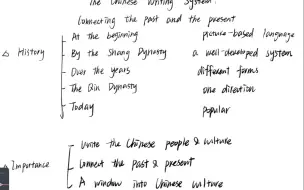 The Chinese Writing System:
Connecting the past and the present
At the beginning picture-based language
△ History By the Shang Dynasty a well-developed system
Over the years different forms
The Qin Dynasty one direction
Today popular
Unite the Chinese people & culture
△ Importance Connect the Past & present
A window into Chinese culture